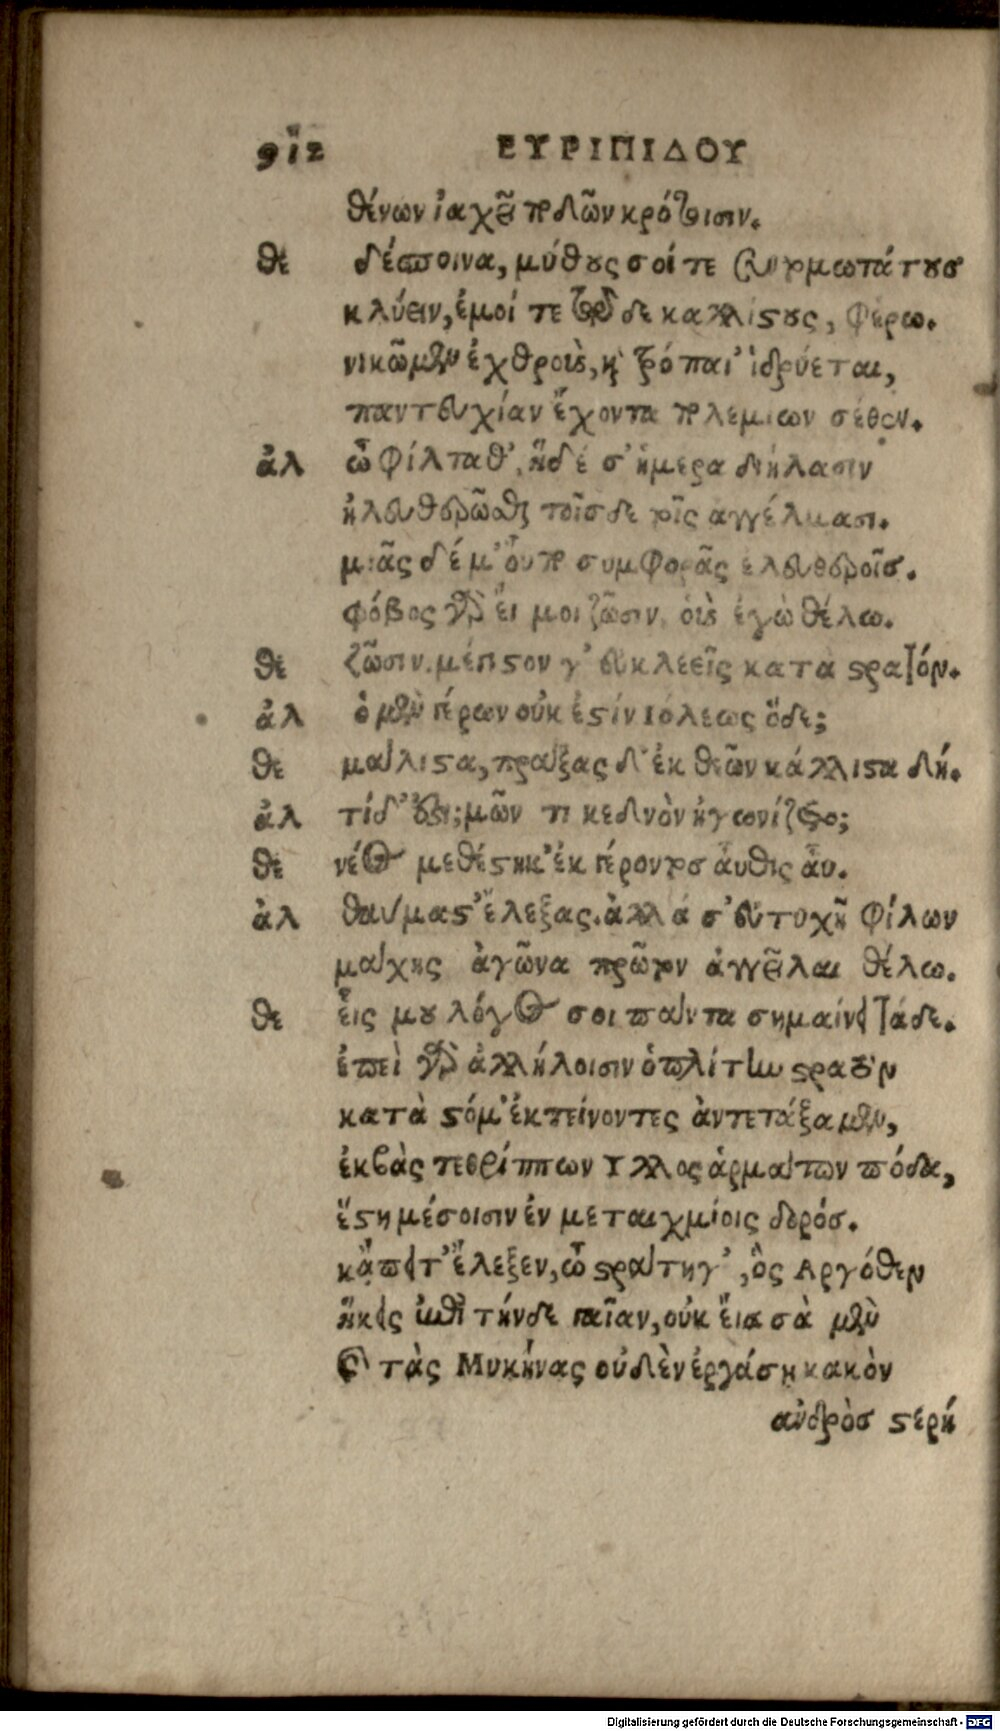 912 ΕΥΡΙΠΙΔΟΥ
θένων ἰαχεῖ ποδῶν κρότοισιν.
θε δέσποινα, μύθους σοί τε συντομωτάτους
κλύειν, ἐμοί τε τῶνδε καλλίστους, φέρω.
νικῶμεν ἐχθροὺς, καὶ τρόπαι' ἱδρύεται,
παντευχίαν ἔχοντα πολεμίων σέθεν.
ἀλ ὦ φίλταθ', ἥδέ σ' ἡμέρα διήλασιν
ἠλευθερῶσθαι τοῖσδε τοῖς ἀγγέλμασι.
μιᾶς δέ μ' οὔπω συμφορᾶς ἐλευθεροῖς.
φόβος γὰρ εἴ μοι ζῶσιν, οὓς ἐγὼ θέλω.
θε ζῶσιν. μέγιστον γ' εὐκλεεῖς κατὰ στρατόν.
ἀλ ὁ μὲν γέρων οὐκ ἐστίν Ιόλεως ὅδε;
θε μάλιστα, πράξας δ' ἐκ θεῶν κάλλιστα δή.
ἀλ τίδ' ἔστι; μῶν τι κεδνὸν ἠγωνίζετο;
θε νέος μεθέστηκ' ἐκ γέροντος αὖθις αὖ.
ἀλ θαυμάστ' ἔλεξας. ἀλλά σ' εὐτυχῆ φίλων
μάχης ἀγῶνα πρῶτον ἀγγεῖλαι θέλω.
θε εἷς μου λόγος σοι πάντα σημαίνει τάδε.
ἐπεὶ γὰρ ἀλλήλοισιν ὁπλίτην στρατὸν
κατὰ στόμ' ἐκτείνοντες ἀντετάξαμεν,
ἐκβὰς τεθρίππων Υλλος ἁρμάτων πόδα,
ἔστη μέσοισιν ἐν μεταιχμίοις δορός.
κἄπειτ' ἔλεξεν, ὦ στράτηγ', ὃς Αργόθεν
ἥκεις ἐπὶ τήνδε γαῖαν, οὐκ εἴασα μὲν
καὶ τὰς Μυκήνας οὐδὲν ἐργάση κακὸν
ἀνδρὸς στερή
Digitalisierung gefördert durch die Deutsche Forschungsgemeinschaft - DFG